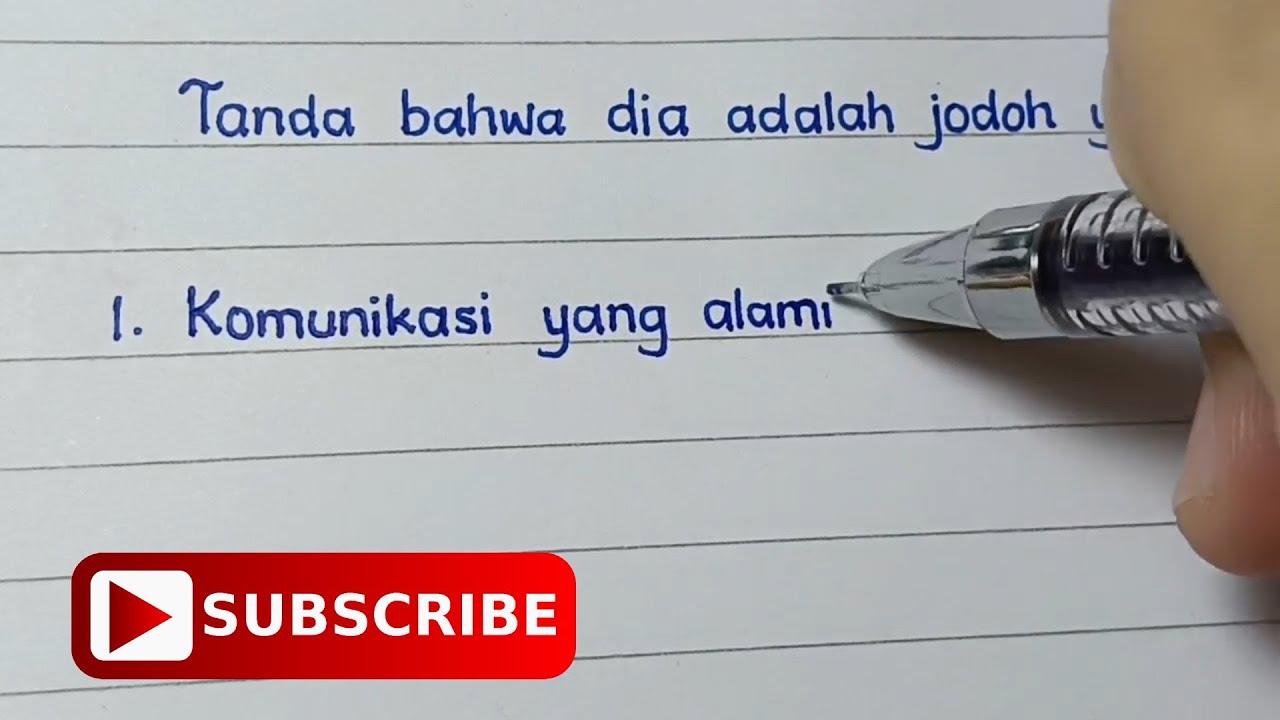 Tanda bahwa dia adalah jodoh
1. Komunikasi yang alami
SUBSCRIBE